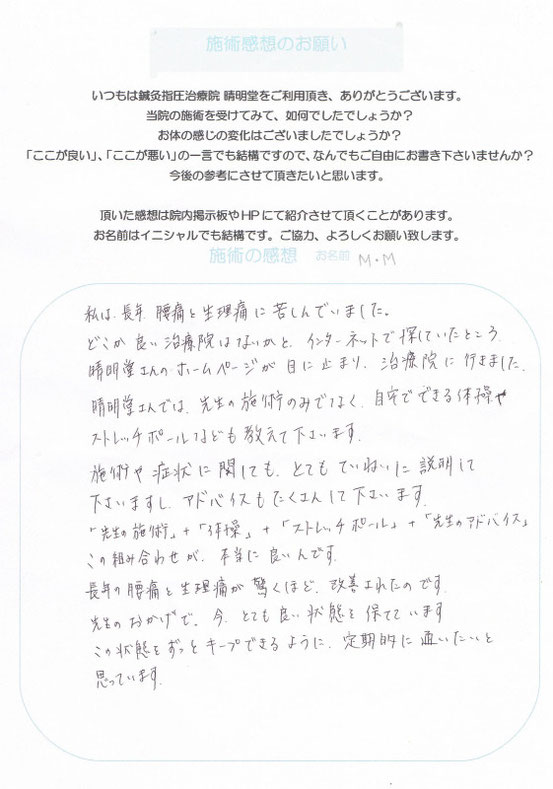 施術感想のお願い
いつもは鍼灸指圧治療院 晴明堂をご利用頂き、ありがとうございます。
当院の施術を受けてみて、如何でしたでしょうか？
お体の感じの変化はございましたでしょうか？
「ここが良い」、「ここが悪い」の一言でも結構ですので、なんでもご自由にお書き下さいませんか？
今後の参考にさせて頂きたいと思います。
頂いた感想は院内掲示板やHPにて紹介させて頂くことがあります。
お名前はイニシャルでも結構です。ご協力、よろしくお願い致します。
施術の感想 お名前 M・M
私は、長年、腰痛と生理痛に苦しんでいました。
どこか良い治療院はないかと、インターネットで探していたところ、
晴明堂さんのホームページが目に止まり、治療院に行きました。
晴明堂さんでは、先生の施術のみでなく、自宅でできる体操や
ストレッチポールなども教えて下さいます。
施術や症状に関しても、とてもていねいに説明して
下さいますし、アドバイスもたくさんして下さいます。
「先生の施術」+「体操」+「ストレッチポール」+「先生のアドバイス」
この組み合わせが、本当に良いんです。
長年の腰痛と生理痛が驚くほど、改善されたのです。
先生のおかげで、今、とても良い状態を保てています
この状態をずっとキープできるように、定期的に通いたいと
思っています。